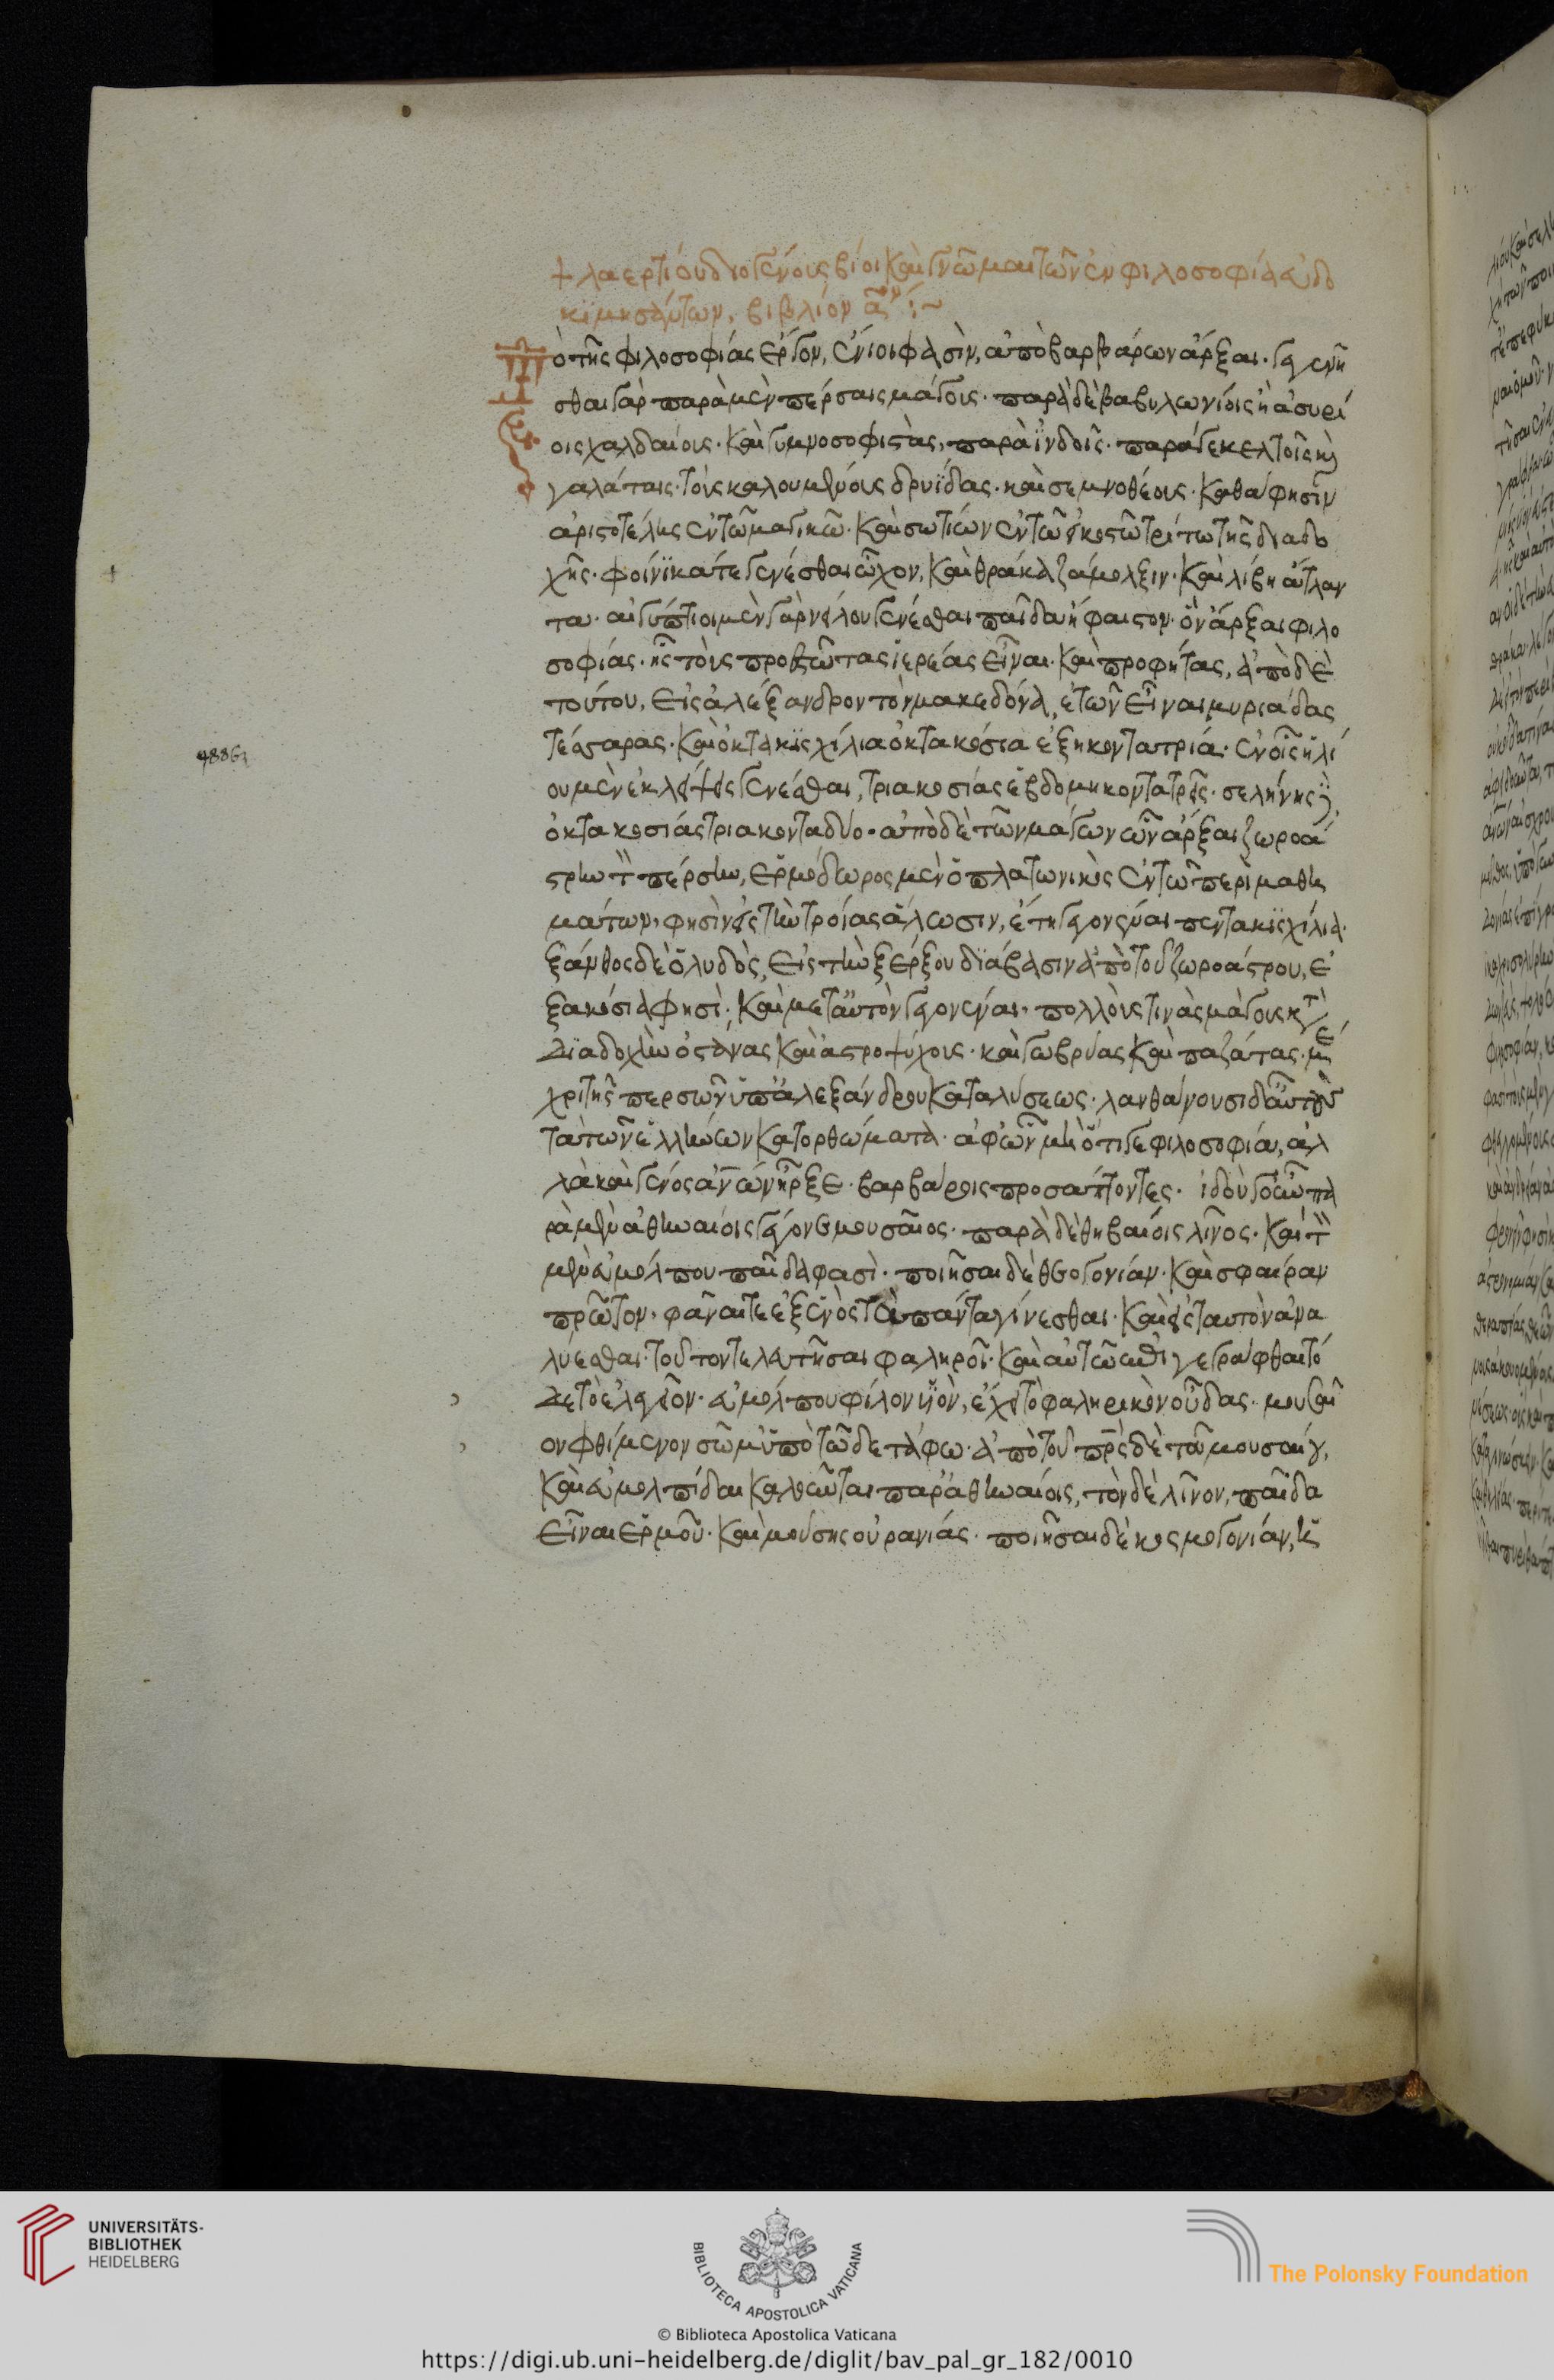 + λαερτίου διογένους βίοι καὶ γνῶμαι τῶν ἐν φιλοσοφία εὐδο
κιμησάντων, βιβλίον α΄ον :~
Τὸ τῆς φιλοσοφίας ἔργον, ἔνιοι φασὶν, ἀπὸ βαρβάρων ἄρξαι· γεγενῆ
σθαι γὰρ παρὰ μὲν πέρσαις μάγους· παρὰ δὲ βαβυλωνίοις ἢ ἀσυρί
οις χαλδαίους· καὶ γυμνοσοφιστὰς, παρὰ ἰνδοῖς· παρά τε κελτοῖς καὶ
γαλάταις· τοὺς καλουμένους δρυΐδας· καὶ σεμνοθέους· καθά φησὶν
ἀριστοτέλης ἐν τῶ μαγικῶ· καὶ σωτίων ἐν τῶ εἰκοστῶ τρίτω τῆς διαδο
χῆς· φοίνϊκά τε γενέσθαι ὦχον, καὶ θράκα ζάμολξιν· καὶ λίβη ἄτλαν
τα· αἰγύπτιοι μὲν γὰρ νείλου γενέσθαι παῖδα ἥφαιστον· ὃν ἄρξαι φιλο
σοφίας· ἧς τοὺς προεστῶτας ἱερέας εἶναι· καὶ προφήτας, ἀπὸ δὲ
τούτου, εἰς ἀλέξανδρον τὸν μακεδόνα, ἐτῶν εἶναι μυριάδας
τέσσαρας· καὶ ὀκτακϊς χίλια ὀκτακόσια ἐξηκοντατρία· ἐν οἷς ἡλί
ου μὲν ἐκλείψεις γενέσθαι, τριακοσίας ἑβδομηκοντατρεῖς· σελήνης δὲ,
ὀκτακοσίας τριακονταδύο· ἀπὸ δὲ τῶν μάγων ὧν ἄρξαι ζωροά
στρην τὸν πέρσην, ἑρμόδωρος μὲν ὁ πλατωνικὸς ἐν τῶ περὶ μαθη
μάτων, φησὶν εἰς τὴν τροίας ἅλωσιν, ἔτη γεγονέναι πεντακϊς χίλια·
ξάνθος δὲ ὁ λυδὸς, εἰς τὴν ξέρξου διάβασιν ἀπὸ τοῦ ζωροάστρου, ἑ
ξακόσιά φησὶ· καὶ μετ' αὐτὸν γεγονέναι, πολλοὺς τινὰς μάγους κατὰ
διαδοχὴν ὀστάνας καὶ ἀστροψύχους· καὶ γωβρύας καὶ παζάτας· μέ
χρι τῆς περσῶν ὑπ' ἀλεξάνδρου καταλύσεως· λανθάνουσι δ' αὑτοὺς
τὰ τῶν ἑλλήνων κατορθώματα· ἀφ' ὧν μὴ ὅτι γε φιλοσοφία, ἀλ
λὰ καὶ γένος ἀνων ἦρξε· βαρβάροις προσάπτοντες· ἰδοὺ γοῦν πα
ρὰ μὲν ἀθηναίοις γέγονε μουσαῖος· παρὰ δὲ θηβαίοις λῖνος· καὶ τὸν
μὲν εὐμόλπου παῖδα φασὶ· ποιῆσαι δὲ θεογονίαν· καὶ σφαῖραν
πρῶτον· φάναι τε ἐξ ἑνὸς τὰ πάντα γίνεσθαι· καὶ εἰς ταυτὸν ἀνα
λύεσθαι· τοῦτον τελευτῆσαι φαληροῖ· καὶ αὐτῶ ἐπιγεγράφθαι τό
δε τὸ ἐλεγεῖον· εὐμόλπου φίλον υἱὸν, ἔχει τὸ φαληρικὸν οὖδας· μουσαῖ
ον φθίμενον σῶμ' ὑπὸ τῶδε τάφω· ἀπὸ τοῦ πρς δὲ τοῦ μουσαίου,
καὶ εὐμολπίδαι καλοῦνται παρ' ἀθηναίοις, τὸν δὲ λῖνον, παῖδα
εἶναι ἑρμοῦ· καὶ μούσης οὐρανίας· ποιῆσαι δὲ κοσμογονίαν, ἡ
UNIVERSITÄTS-
BIBLIOTHEK
HEIDELBERG
BIBLIOTECA APOSTOLICA VATICANA
The Polonsky Foundation
© Biblioteca Apostolica Vaticana
https://digi.ub.uni-heidelberg.de/diglit/bav_pal_gr_182/0010